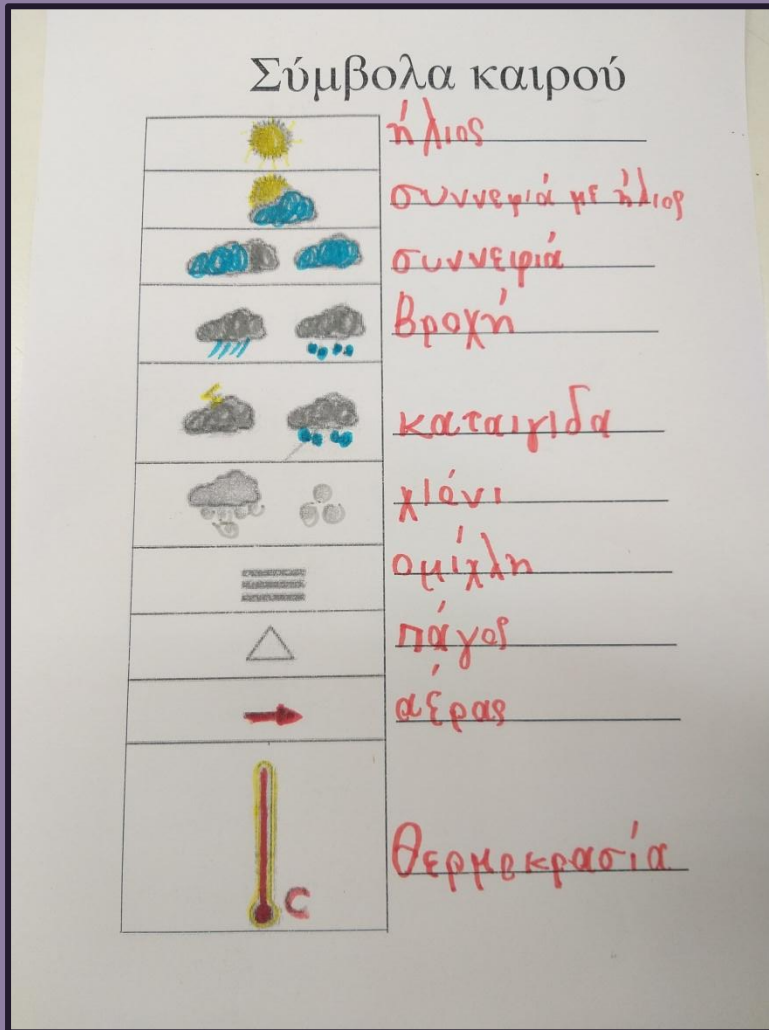 Σύμβολα καιρού
ήλιος
συννεφιά με ήλιος
συννεφιά
Βροχή
καταιγιδα
χιόνι
ομίχλη
πάγος
αέρας
θερμοκρασία
C